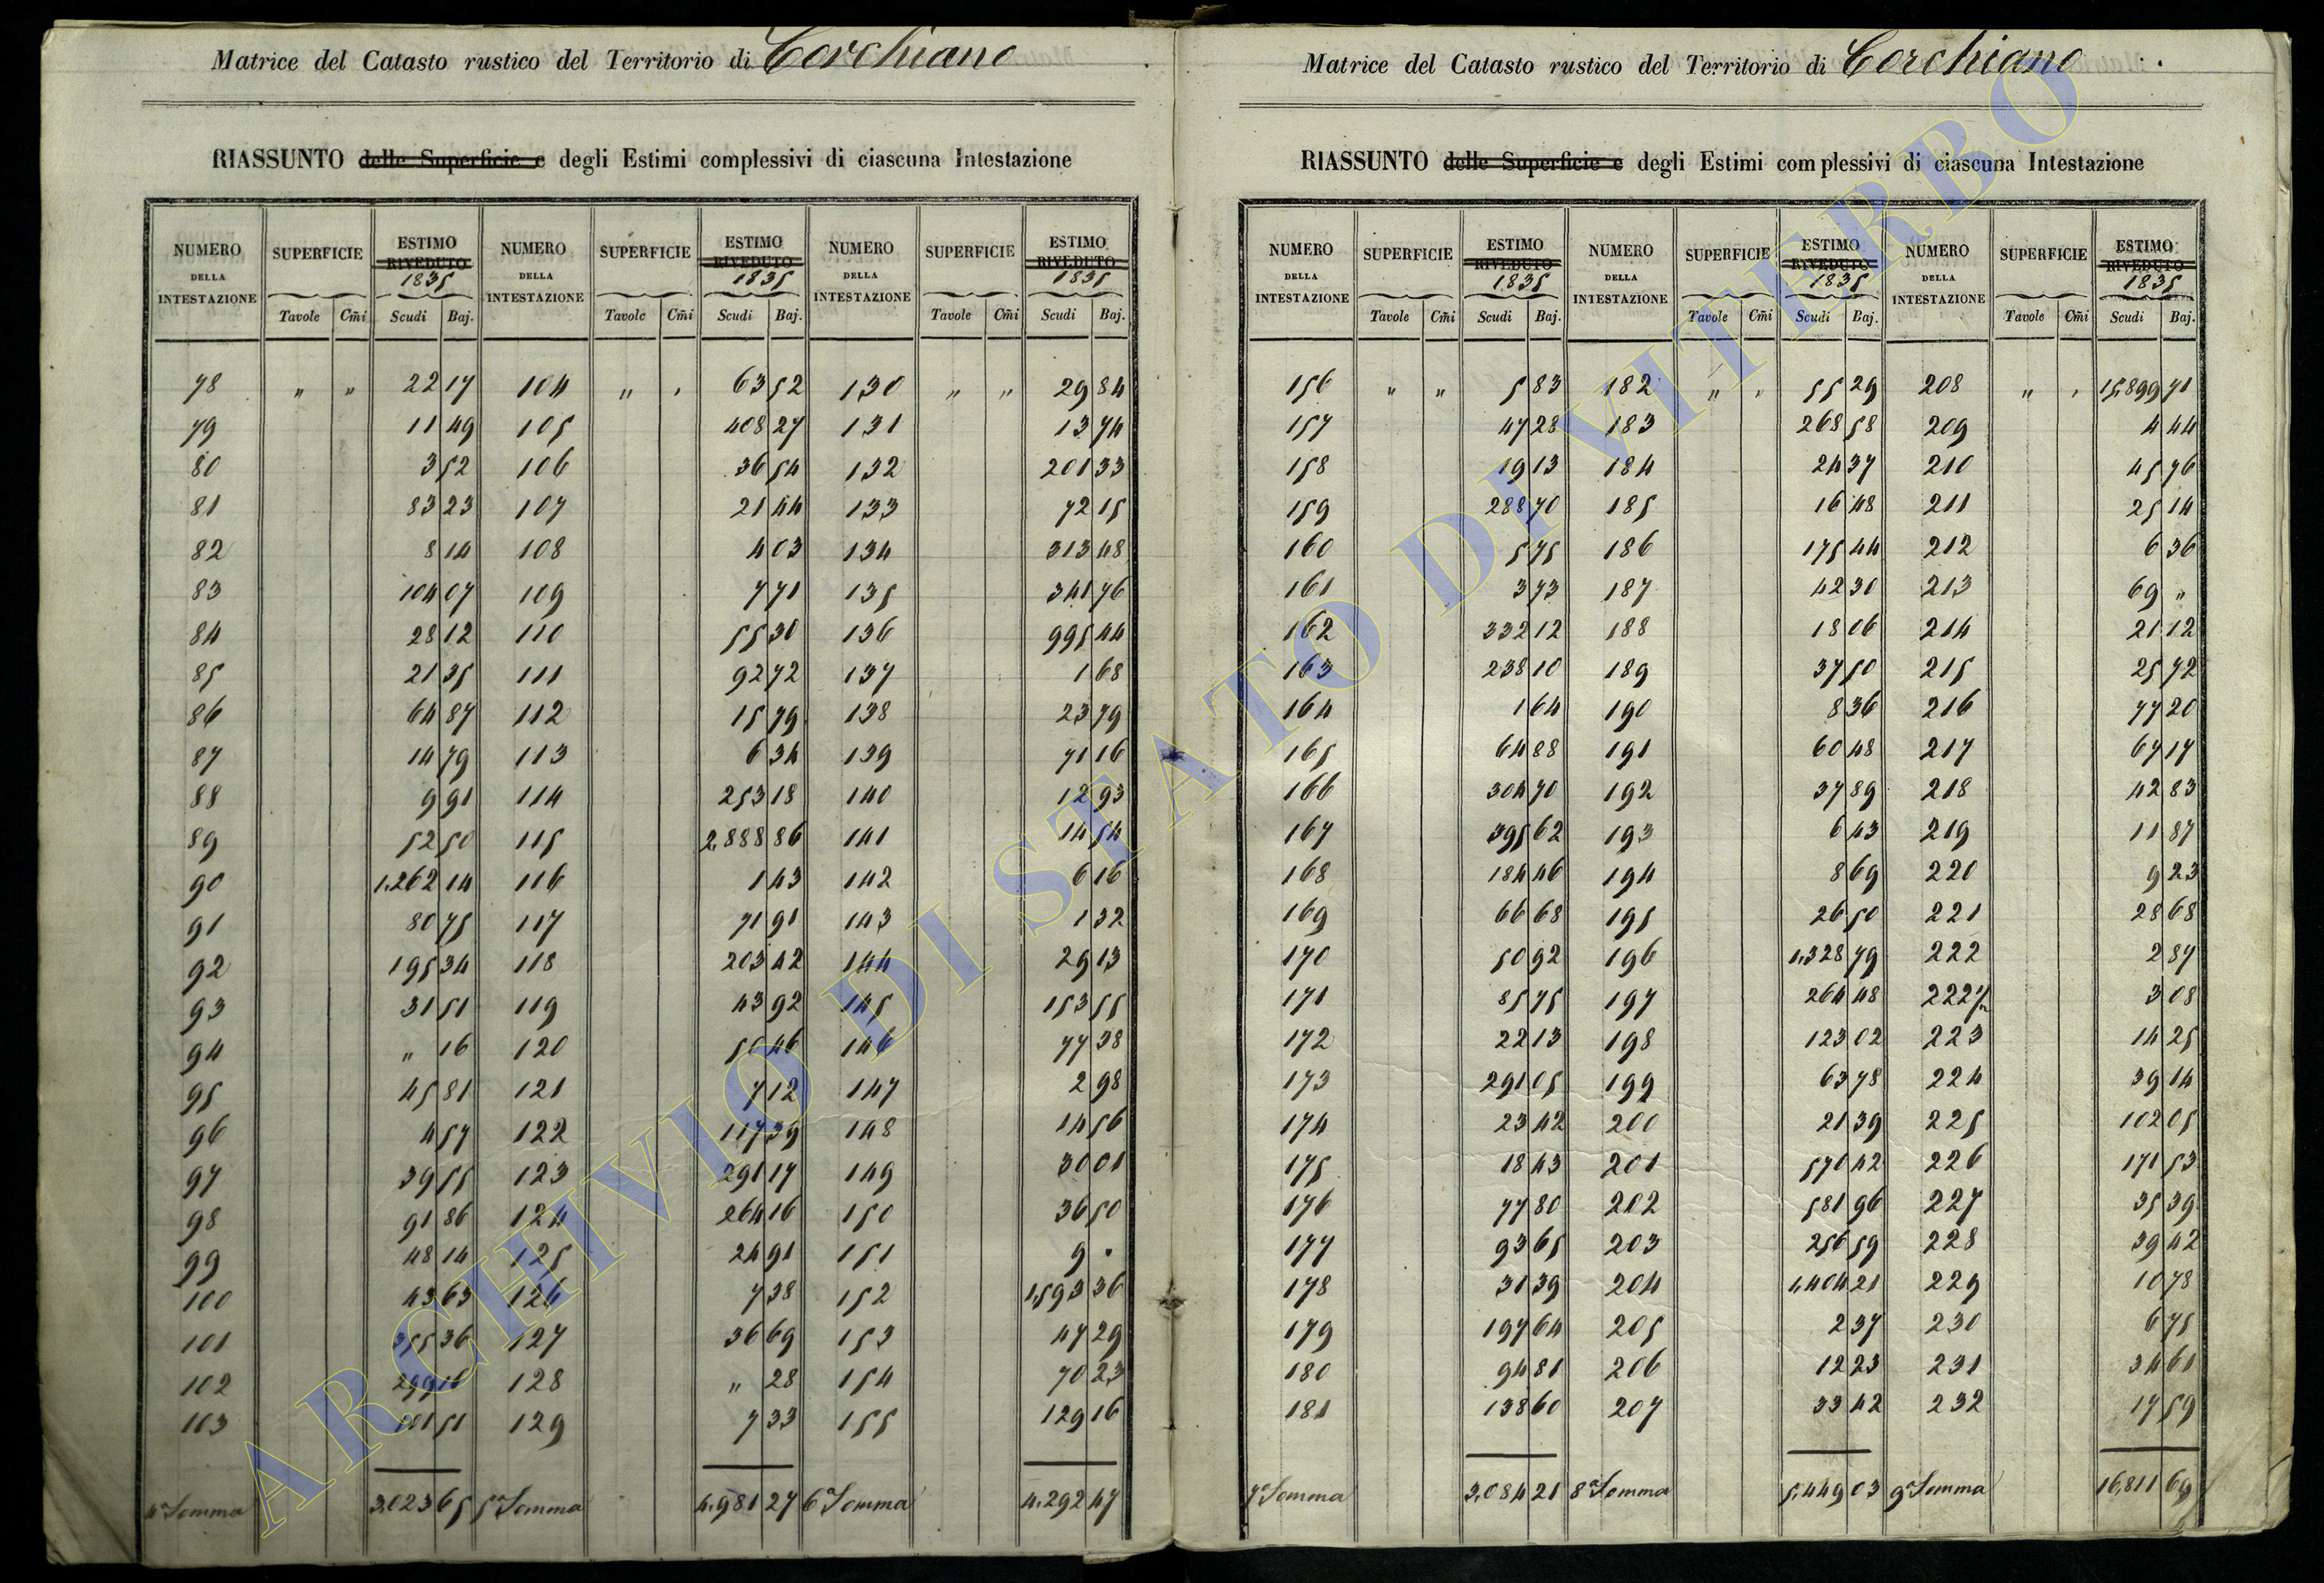 Matrice del Catasto rustico del Territorio di Corchiano
RIASSUNTO delle Superficie e degli Estimi complessivi di ciascuna Intestazione
NUMERO DELLA INTESTAZIONE SUPERFICIE ESTIMO RIVEDUTO 1835 NUMERO DELLA INTESTAZIONE SUPERFICIE ESTIMO RIVEDUTO 1835 NUMERO DELLA INTESTAZIONE SUPERFICIE ESTIMO RIVEDUTO 1835
Tavole Cm̃i Scudi Baj. Tavole Cm̃i Scudi Baj. Tavole Cm̃i Scudi Baj.
78 " " 22 17 104 " " 63 52 130 " " 29 84
79 11 49 105 408 27 131 13 74
80 3 52 106 36 54 132 201 33
81 83 23 107 21 44 133 72 15
82 8 14 108 4 03 134 313 48
83 104 07 109 7 71 135 341 76
84 28 12 110 55 30 136 995 44
85 21 35 111 92 72 137 1 68
86 64 87 112 15 79 138 23 79
87 14 79 113 6 34 139 71 16
88 9 91 114 253 18 140 12 93
89 52 50 115 2,888 86 141 14 54
90 1,262 14 116 1 43 142 6 16
91 80 75 117 71 91 143 1 32
92 195 34 118 203 42 144 29 13
93 31 51 119 43 92 145 153 55
94 " 16 120 50 46 146 77 38
95 45 81 121 7 12 147 2 98
96 4 57 122 117 39 148 14 56
97 39 55 123 291 17 149 30 01
98 91 86 124 264 16 150 36 50
99 48 14 125 24 91 151 9 "
100 43 63 126 7 38 152 1,593 36
101 355 36 127 36 69 153 47 29
102 299 16 128 " 28 154 70 23
103 101 51 129 7 33 155 129 16
4ª Somma 3,023 65 5ª Somma 4,981 27 6ª Somma 4,292 47
Matrice del Catasto rustico del Territorio di Corchiano
RIASSUNTO delle Superficie e degli Estimi complessivi di ciascuna Intestazione
NUMERO DELLA INTESTAZIONE SUPERFICIE ESTIMO RIVEDUTO 1835 NUMERO DELLA INTESTAZIONE SUPERFICIE ESTIMO RIVEDUTO 1835 NUMERO DELLA INTESTAZIONE SUPERFICIE ESTIMO RIVEDUTO 1835
Tavole Cm̃i Scudi Baj. Tavole Cm̃i Scudi Baj. Tavole Cm̃i Scudi Baj.
156 " " 5 83 182 " " 55 29 208 " " 15,899 71
157 47 28 183 268 58 209 4 44
158 19 13 184 24 37 210 45 76
159 288 70 185 16 48 211 25 14
160 5 75 186 175 44 212 6 36
161 3 73 187 42 30 213 69 "
162 332 12 188 18 06 214 21 12
163 238 10 189 37 50 215 25 72
164 1 64 190 8 36 216 77 20
165 64 88 191 60 48 217 67 17
166 304 70 192 37 89 218 42 83
167 395 62 193 6 43 219 11 87
168 184 46 194 8 69 220 9 23
169 66 68 195 26 50 221 28 68
170 50 92 196 1,328 79 222 2 87
171 85 75 197 264 48 222 1/2 3 08
172 22 13 198 123 02 223 14 25
173 291 05 199 63 78 224 39 14
174 23 42 200 21 39 225 102 05
175 18 43 201 570 42 226 171 53
176 77 80 202 581 96 227 35 39
177 93 65 203 256 59 228 39 42
178 31 39 204 1,404 21 229 10 78
179 197 64 205 2 37 230 6 75
180 94 81 206 12 23 231 34 61
181 138 60 207 33 42 232 17 59
7ª Somma 3,084 21 8ª Somma 5,449 03 9ª Somma 16,811 69
ARCHIVIO DI STATO DI VITERBO